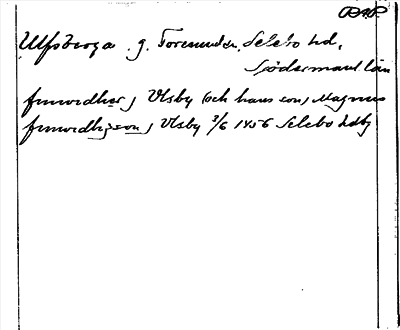 Ulfsberga. g. Toresunds s., Selebo hd,
Södermanl. län
finwidher j Vlsby (och hans son) Magnus
finwidhsson j Vlsby 3/6 1456 Selebo hdb